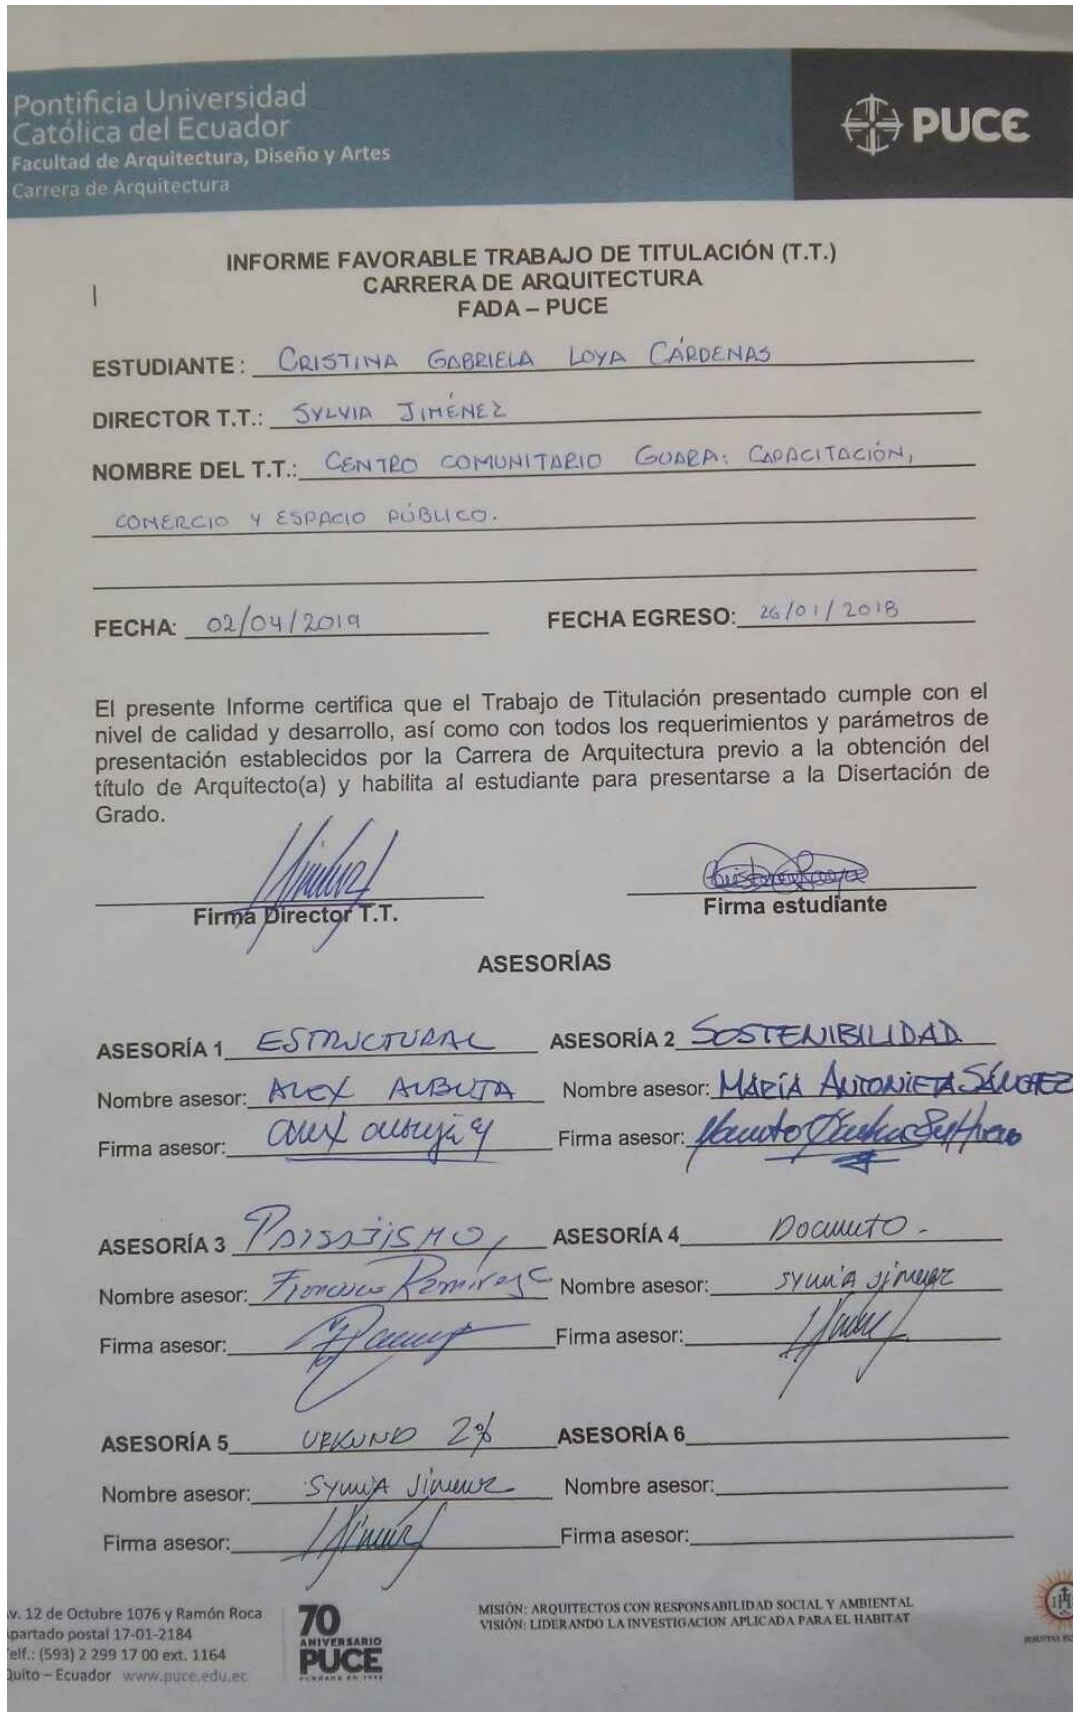 Pontificia Universidad
Católica del Ecuador
Facultad de Arquitectura, Diseño y Artes
Carrera de Arquitectura
PUCE
INFORME FAVORABLE TRABAJO DE TITULACIÓN (T.T.)
CARRERA DE ARQUITECTURA
FADA – PUCE
ESTUDIANTE: CRISTINA GABRIELA LOYA CÁRDENAS
DIRECTOR T.T.: SYLVIA JIMÉNEZ
NOMBRE DEL T.T.: CENTRO COMUNITARIO GUABA: CAPACITACIÓN,
COMERCIO Y ESPACIO PÚBLICO.
FECHA: 02/04/2019 FECHA EGRESO: 26/01/2018
El presente Informe certifica que el Trabajo de Titulación presentado cumple con el
nivel de calidad y desarrollo, así como con todos los requerimientos y parámetros de
presentación establecidos por la Carrera de Arquitectura previo a la obtención del
título de Arquitecto(a) y habilita al estudiante para presentarse a la Disertación de
Grado.
Firma Director T.T. Firma estudiante
ASESORÍAS
ASESORÍA 1 ESTRUCTURAL ASESORÍA 2 SOSTENIBILIDAD
Nombre asesor: ALEX Nombre asesor: MARÍA ANTONIETA SÁNCHEZ
Firma asesor: Firma asesor:
ASESORÍA 3 PAISAJISMO, ASESORÍA 4 Documento -
Nombre asesor: Francisco Ramírez C Nombre asesor: SYLVIA JIMENEZ
Firma asesor: Firma asesor:
ASESORÍA 5 URKUND 2% ASESORÍA 6
Nombre asesor: SYLVIA Jimenez Nombre asesor:
Firma asesor: Firma asesor:
v. 12 de Octubre 1076 y Ramón Roca
partado postal 17-01-2184
elf.: (593) 2 299 17 00 ext. 1164
Quito – Ecuador www.puce.edu.ec
70
ANIVERSARIO
PUCE
FUNDADA EN 1946
MISIÓN: ARQUITECTOS CON RESPONSABILIDAD SOCIAL Y AMBIENTAL
VISIÓN: LIDERANDO LA INVESTIGACION APLICADA PARA EL HABITAT